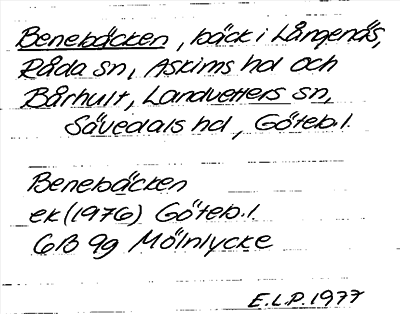 Benebäcken, bäck i Långenäs,
Råda sn, Askims hd och
Bårhult, Landvetters sn,
Sävedals hd, Göteb. l.
Benebäcken
ek (1976) Göteb. l.
6B 9g Mölnlycke
E.L.P. 1977